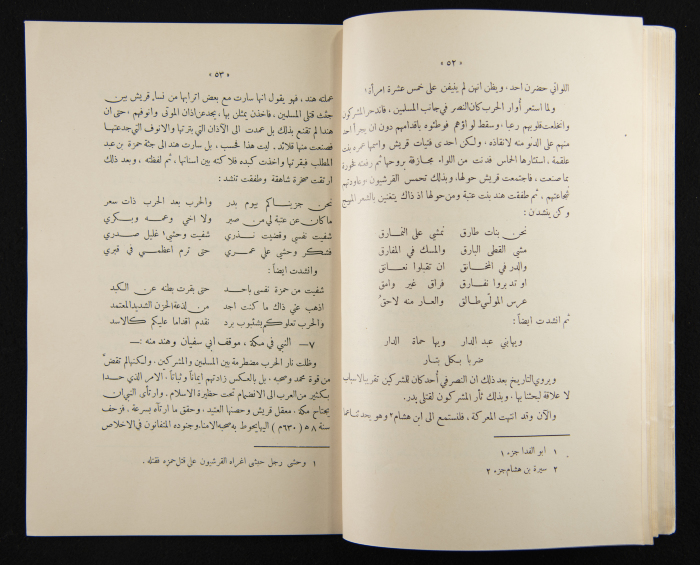 «٥٢»
اللواتي حضرن احد، ويظن انهن لم ينيفن على خمس عشرة امرأة١
ولما استعر أوار الحرب كان النصر في جانب المسلمين، فاندحر المشركون
وانخلعت قلوبهم رعبا، وسقط لواؤهم فوطئوه باقدامهم دون ان يجرأ احد
منهم على الدنو منه لانقاذه، ولكن احدى فتيات قريش واسمها عمره بنت
علقمة، استثارها الحماس فدنت من اللواء مجازفة بروحها ثم رفعته فخورة
بما صنعت، فاجتمعت قريش حولها، وبذلك تحمس القرشيون وعاودتهم
شجاعتهم، ثم طفقت هند بنت عتبة ومن حولها اذ ذاك يتغنين بالشعر المهيج
وكن ينشدن :
نحن بنات طارق نمشي على النمارق
مشي القطى البارق والمسك في المفارق
والدر في المخانق ان تقبلوا نعانق
او تدبروا نفارق فراق غير وامق
عرس المولّي طالق والعار منه لاحقُ
ثم انشدت ايضاً :
ويها بني عبد الدار ويها حماة الدار
ضربا بكل بتار
ويروي التاريخ بعد ذلك ان النصر في أحد كان للمشركين تقريبا لاسباب
لا علاقة لبحثنا بها، وبذلك ثأر المشركون لقتلى بدر.
والآن وقد انتهت المعركة، فلنستمع الى ابن هشام٢ وهو يحدثنا عما
١ ابو الفدا جزء ١
٢ سيرة بن هشام جزء ٢
«٥٣»
عملته هند، فهو يقول انها سارت مع بعض اترابها من نساء قريش بين
جثث قتلى المسلمين، فاخذن يمثلن بها، يجدعن اذان الموتى وانوفهم، حتى ان
هندا لم تقنع بذلك بل عمدت الى الآذان التي بترتها والانوف التي جدعتها
فصنعت منها قلائد. ليت هذا فحسب، بل سارت هند الى جثة حمزة بن عبد
المطلب فبقرتها واخذت كبده فلاكته بين اسنانها، ثم لفظته، وبعد ذلك
ارتقت صخرة شاهقة وطفقت تنشد :
نحن جزيناكم بيوم بدر والحرب بعد الحرب ذات سعر
ما كان عن عتبة لي من صبر ولا اخي وعمه وبكري
شفيت نفسي وقضيت نذري شفيت وحشي١ غليل صدري
فشكر وحشي علي عمري حتى ترم اعظمي في قبري
وانشدت ايضاً :
شفيت من حمزة نفسي باحد حتى بقرت بطنه عن الكبد
اذهب عني ذاك ما كنت اجد من لذعة الحزن الشديد المعتمد
والحرب تعلوكم بشئبوب برد نقدم اقداما عليكم كالاسد
٧— النبي في مكة، موقف ابي سفيان وهند منه :—
وظلت نار الحرب مضطرمة بين المسلمين والمشركين، ولكنها لم تنقض
من قوة محمد وصحبه، بل بالعكس زادتهم ايماناً وثباتاً. الامر الذي حدا
بكثير من العرب الى الانضمام تحت حظيرة الاسلام. وارتأى النبي ان
يجتاح مكة، معقل قريش وحصنها العتيد، وحقق ما ارتآه بسرعة. فزحف
سنة ٨ هـ (٦٣٠ م) اليها يحوط به صحبه الامناء وجنوده المتفانون في الاخلاص
١ وحشي رجل حبشي اغراه القرشيون على قتل حمزه فقتله.